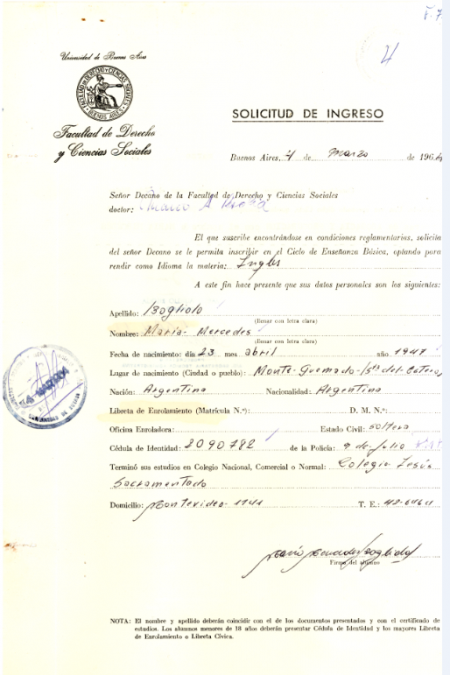 4
Universidad de Buenos Aires
FACULTAD DE DERECHO Y CIENCIAS SOCIALES
BUENOS AIRES
Facultad de Derecho
y Ciencias Sociales
SOLICITUD DE INGRESO
Buenos Aires, 4 de marzo de 196
Señor Decano de la Facultad de Derecho y Ciencias Sociales
doctor: Marco A.
El que suscribe encontrándose en condiciones reglamentarias, solicita
del señor Decano se le permita inscribir en el Ciclo de Enseñanza Básica, optando para
rendir como Idioma la materia: Ingles
A este fin hace presente que sus datos personales son los siguientes:
Apellido:
(Llenar con letra clara)
Nombre: María Mercedes
(Llenar con letra clara)
Fecha de nacimiento: día 23 mes abril año 1947
Lugar de nacimiento (Ciudad o pueblo): Monte Quemado
Nación: Argentina Nacionalidad: Argentina
Libreta de Enrolamiento (Matrícula N.º): D. M. N.º:
Oficina Enroladora: Estado Civil: soltera
Cédula de Identidad: de la Policía: 9 de Julio
Terminó sus estudios en Colegio Nacional, Comercial o Normal: Colegio Jesús
Sacramentado
Domicilio: Montevideo T. E.:
Firma del alumno
NOTA: El nombre y apellido deberán coincidir con el de los documentos presentados y con el certificado de
estudios. Los alumnos menores de 18 años deberán presentar Cédula de Identidad y los mayores Libreta
de Enrolamiento o Libreta Cívica.